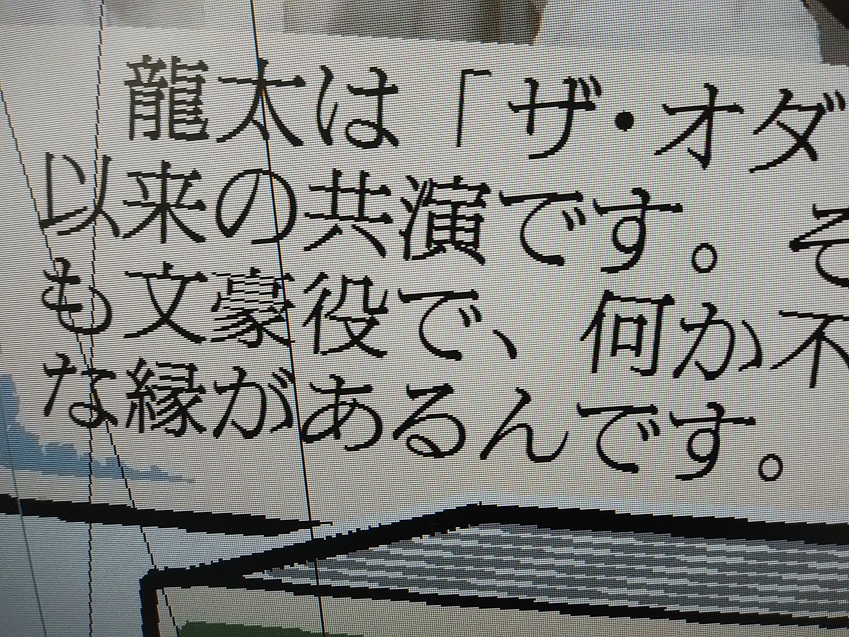 龍太は「ザ・オダ
以来の共演です。そ
も文豪役で、何か不
な縁があるんです。